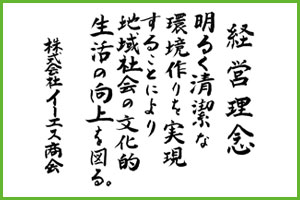 経営理念
明るく清潔な
環境作りを実現
することにより
地域社会の文化的
生活の向上を図る。
株式会社イーエス商会